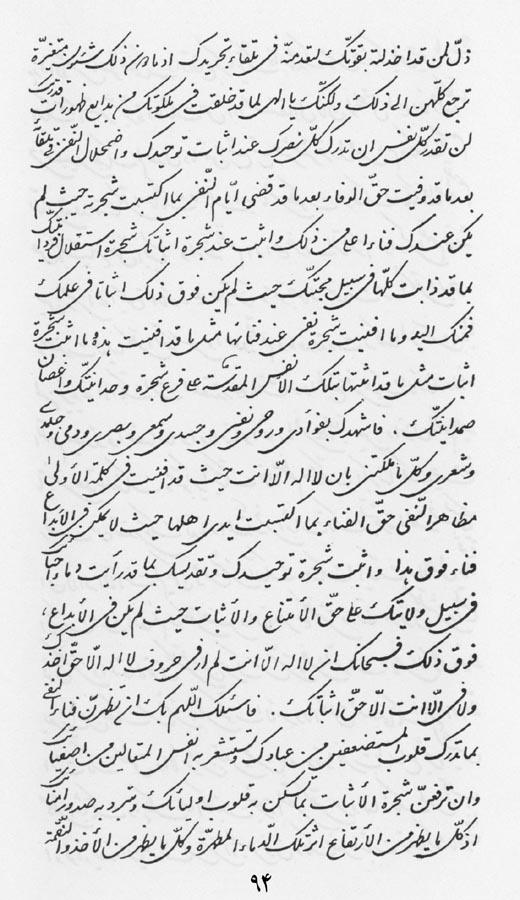 ذلّ لمن قد اخذلته بقوتك لتقدمنّه فی تلقاء تجریدک اذ ما دون ذلک شئون متغیرة
ترجع کلّهن الی ذلک ولکنّک یا الهی لما قد خلقت فی ملکوتک من بدایع ظهورات قدرتک
لن تقدر کلّ نفس ان تدرک کلّ نصرک عند اثبات توحیدک واضمحلال النفی تلقاء
بعد ما قد وفیت حقّ الوفاء بعد ما قد قضی ایّام النّفی بما اکتسبت شجرته حیث لم
یکن عندک فناء اعلی من ذلک واثبت عند شجرة اثباتک شجرة استقلال فردانیّتک
بما قد ذابت کلّها فی سبیل محبتک حیث لم یکن فوق ذلک اثباتا فی علمک
فمنک الیه وما افنیت شجرة نفی عند فنائها مثل ما قد افنیت هذه وما اثبت شجرة
اثبات مثل ما قد اثبتها بتلک الانفس المقدسة علی فرع شجرة وحدانیتک واغصان
صمدانیتک . فاشهدک بفوادی وروحی ونفسی وجسدی وسمعی وبصری ودمی وجلدی
وشعری وکلّ ما ملکتنی بان لا اله الّا انت حیث قد افنیت فی کلمة الأولی
مظاهر النّفی حقّ الفناء بما اکتسبت ایدی اهلها حیث لا یمکن فی الابداع
فناء فوق هذا واثبت شجرة توحیدک وتقدیسک بما قد رایت دماء احبائک
فی سبیل ولایتک علی حقّ الأمتناع والأثبات حیث لم یکن فی الأبداع،
فوق ذلک فسبحانک ان لا اله الّا انت لم ار فی حروف لا اله الّا حقّ اخذک
ولا فی الّا انت الّا حقّ اثباتک . فاسئلک اللهم بک ان تظهرنّ فناء النفی
بما تدرک قلوب المستضعفین من عبادک وتستشعر به انفس المتعالین من اصفیائک
وان ترفعنّ شجرة الأثبات بما تسکن به قلوب اولیائک وتبرد به صدور امنائک
اذ کلّ ما یظهر من الأرتفاع اثر تلک الدماء المطهّرة وکلّ ما یظهر من الأخذ والنّقمة
۹۴